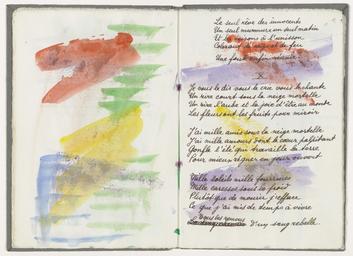 Le seul rêve des innocents
Un seul murmure un seul matin
Et les saisons à l'unisson
Colorant de neige et de feu
Une foule enfin réunie.
X
Je vous le dis vous le crie vous le chante
Un rire court sous la neige mortelle
Un rire l'aube et la joie d'être au monde
Les fleurs ont les fruits pour miroir
J'ai mille amis sous la neige mortelle
J'ai mille amours dont le cœur palpitant
Gonfle l'été qui travaille la terre
Pour mieux régner en jour ouvert
Mille soleils mille fourrures
Mille caresses sous le froid
Plutôt que de mourir j'efface
Ce que j'ai mis de temps à vivre
Tous les remous
d'un sang rebelle.